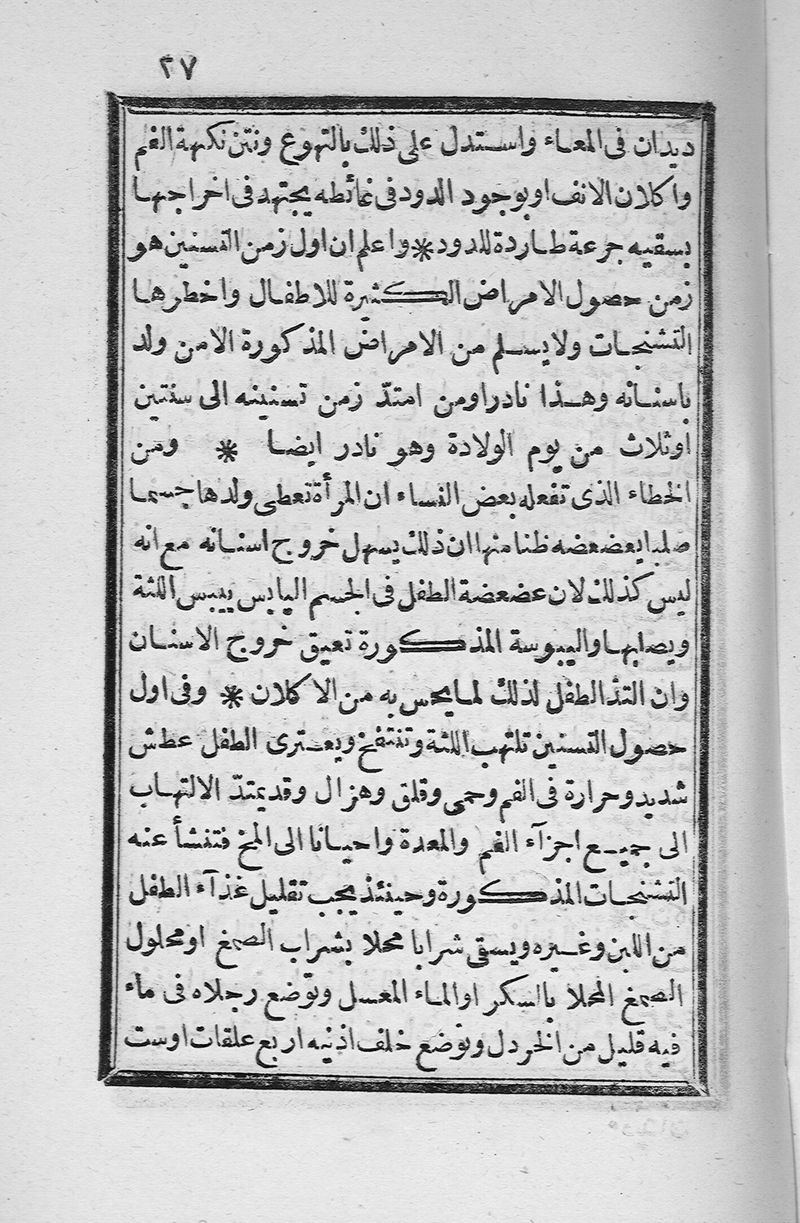 ٢٧
ديدان فى المعاء واستدل على ذلك بالتهوع ونتن نكهة الفم
واكلان الانف او بوجود الدود فى غائطه يجتهد فى اخراجها
بسقيه جرعة طاردة للدود * واعلم ان اول زمن التسنين هو
زمن حصول الامراض الكثيرة للاطفال واخطرها
التشنجات ولا يسلم من الامراض المذكورة الامن ولد
باسنانه وهذا نادر اومن امتدّ زمن تسنينه الى سنتين
اوثلاث من يوم الولادة وهو نادر ايضا * ومن
الخطاء الذى تفعله بعض النساء ان المرأة تعطى ولدها جسما
صلبا يعضعضه ظنا منها ان ذلك يسهل خروج اسنانه مع انه
ليس كذلك لان عضعضة الطفل فى الجسم اليابس ييبس اللثة
ويصلبها واليبوسة المذكورة تعيق خروج الاسنان
وان التذ الطفل لذلك لما يحس به من الاكلان * وفى اول
حصول التسنين تلتهب اللثة وتنتفخ ويعترى الطفل عطش
شديد وحرارة فى الفم وحمى وقلق وهزال وقد يمتدّ الالتهاب
الى جميع اجزآء الفم والمعدة واحيانا الى المخ فتنشأ عنه
التشنجات المذكورة وحينئذ يجب تقليل غذآء الطفل
من اللبن وغيره ويسقى شرابا محلا بشراب الصمغ او محلول
الصمغ المحلا بالسكر او الماء المعسل وتوضع رجلاه فى ماء
فيه قليل من الخردل وتوضع خلف اذنيه اربع علقات اوست